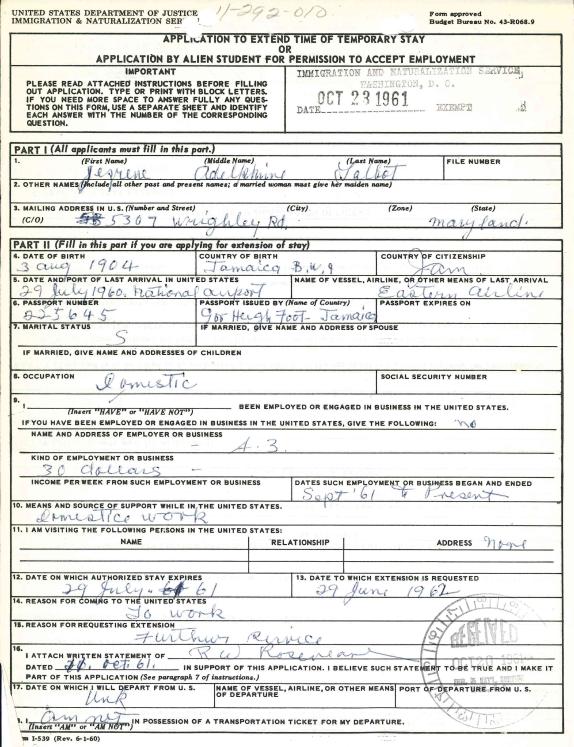 UNITED STATES DEPARTMENT OF JUSTICE
IMMIGRATION & NATURALIZATION SER
11-292-010
Form approved
Budget Bureau No. 43-R068.9
APPLICATION TO EXTEND TIME OF TEMPORARY STAY
OR
APPLICATION BY ALIEN STUDENT FOR PERMISSION TO ACCEPT EMPLOYMENT
IMPORTANT
PLEASE READ ATTACHED INSTRUCTIONS BEFORE FILLING
OUT APPLICATION. TYPE OR PRINT WITH BLOCK LETTERS.
IF YOU NEED MORE SPACE TO ANSWER FULLY ANY QUES-
TIONS ON THIS FORM, USE A SEPARATE SHEET AND IDENTIFY
EACH ANSWER WITH THE NUMBER OF THE CORRESPONDING
QUESTION.
IMMIGRATION AND NATURALIZATION SERVICE,
WASHINGTON, D. C.
OCT 23 1961
DATE EXEMPT
PART I (All applicants must fill in this part.)
1. (First Name) (Middle Name) (Last Name) FILE NUMBER
Talbot
2. OTHER NAMES (Include all other past and present names; a married woman must give her maiden name)
3. MAILING ADDRESS IN U.S. (Number and Street) (City) (Zone) (State)
(C/O) 5307 Wrighley Rd. maryland.
PART II (Fill in this part if you are applying for extension of stay)
4. DATE OF BIRTH COUNTRY OF BIRTH COUNTRY OF CITIZENSHIP
3 aug 1904 Jamaica B.W.I Jam
5. DATE AND/PORT OF LAST ARRIVAL IN UNITED STATES NAME OF VESSEL, AIRLINE, OR OTHER MEANS OF LAST ARRIVAL
29 July 1960, National airport Eastern Airline
6. PASSPORT NUMBER PASSPORT ISSUED BY (Name of Country) PASSPORT EXPIRES ON
225645 Jamaica
7. MARITAL STATUS IF MARRIED, GIVE NAME AND ADDRESS OF SPOUSE
S
IF MARRIED, GIVE NAME AND ADDRESSES OF CHILDREN
8. OCCUPATION SOCIAL SECURITY NUMBER
Domestic
9.
I BEEN EMPLOYED OR ENGAGED IN BUSINESS IN THE UNITED STATES.
(Insert "HAVE" or "HAVE NOT")
IF YOU HAVE BEEN EMPLOYED OR ENGAGED IN BUSINESS IN THE UNITED STATES, GIVE THE FOLLOWING: No
NAME AND ADDRESS OF EMPLOYER OR BUSINESS
- A-3.
KIND OF EMPLOYMENT OR BUSINESS
30 dollars -
INCOME PER WEEK FROM SUCH EMPLOYMENT OR BUSINESS DATES SUCH EMPLOYMENT OR BUSINESS BEGAN AND ENDED
Sept '61 to Present
10. MEANS AND SOURCE OF SUPPORT WHILE IN THE UNITED STATES.
Domestice work
11. I AM VISITING THE FOLLOWING PERSONS IN THE UNITED STATES:
NAME RELATIONSHIP ADDRESS None
12. DATE ON WHICH AUTHORIZED STAY EXPIRES 13. DATE TO WHICH EXTENSION IS REQUESTED
29 July 61 29 June 1962
14. REASON FOR COMING TO THE UNITED STATES
To work
15. REASON FOR REQUESTING EXTENSION
Further Service
16.
I ATTACH WRITTEN STATEMENT OF R W
DATED Oct 61. IN SUPPORT OF THIS APPLICATION. I BELIEVE SUCH STATEMENT TO BE TRUE AND I MAKE IT
PART OF THIS APPLICATION (See paragraph 7 of instructions.)
RECEIVED
17. DATE ON WHICH I WILL DEPART FROM U.S. NAME OF VESSEL, AIRLINE, OR OTHER MEANS OF DEPARTURE PORT OF DEPARTURE FROM U.S.
Unk
I am not IN POSSESSION OF A TRANSPORTATION TICKET FOR MY DEPARTURE.
(Insert "AM" or "AM NOT")
m I-539 (Rev. 6-1-60)